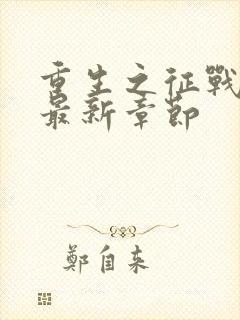 重生之征戰
最新章節
鄭自来